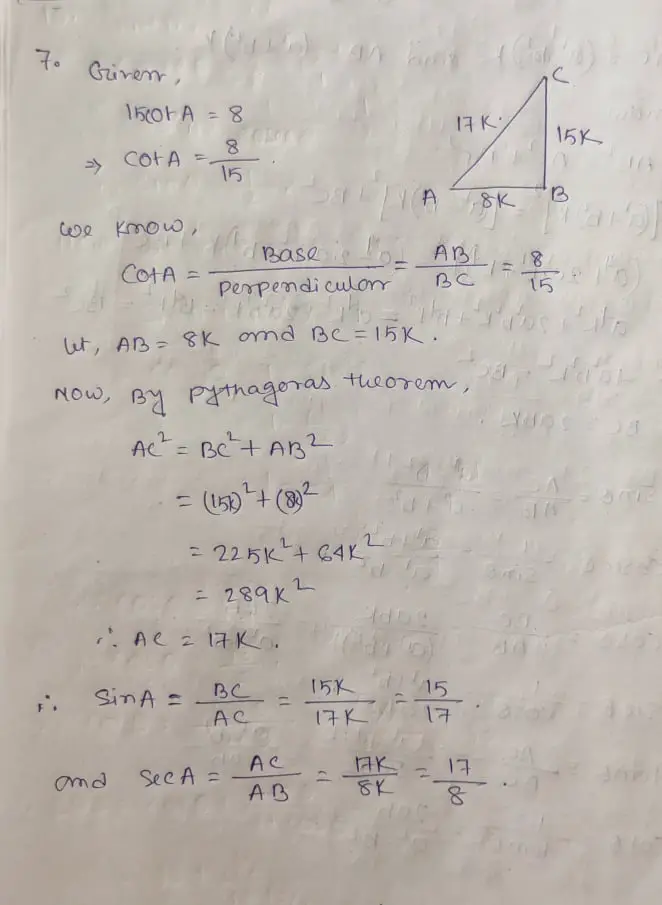 7. Given,
15cotA = 8
⇒ CotA = 8/15.
C
17K
15K
A
8K
B
We know,
CotA = Base/perpendicular = AB/BC = 8/15
let, AB = 8K and BC = 15K.
NOW, By pythagoras theorem,
AC² = BC² + AB²
= (15K)² + (8K)²
= 225K² + 64K²
= 289K²
∴ AC = 17K.
∴ SinA = BC/AC = 15K/17K = 15/17.
and SecA = AC/AB = 17K/8K = 17/8.